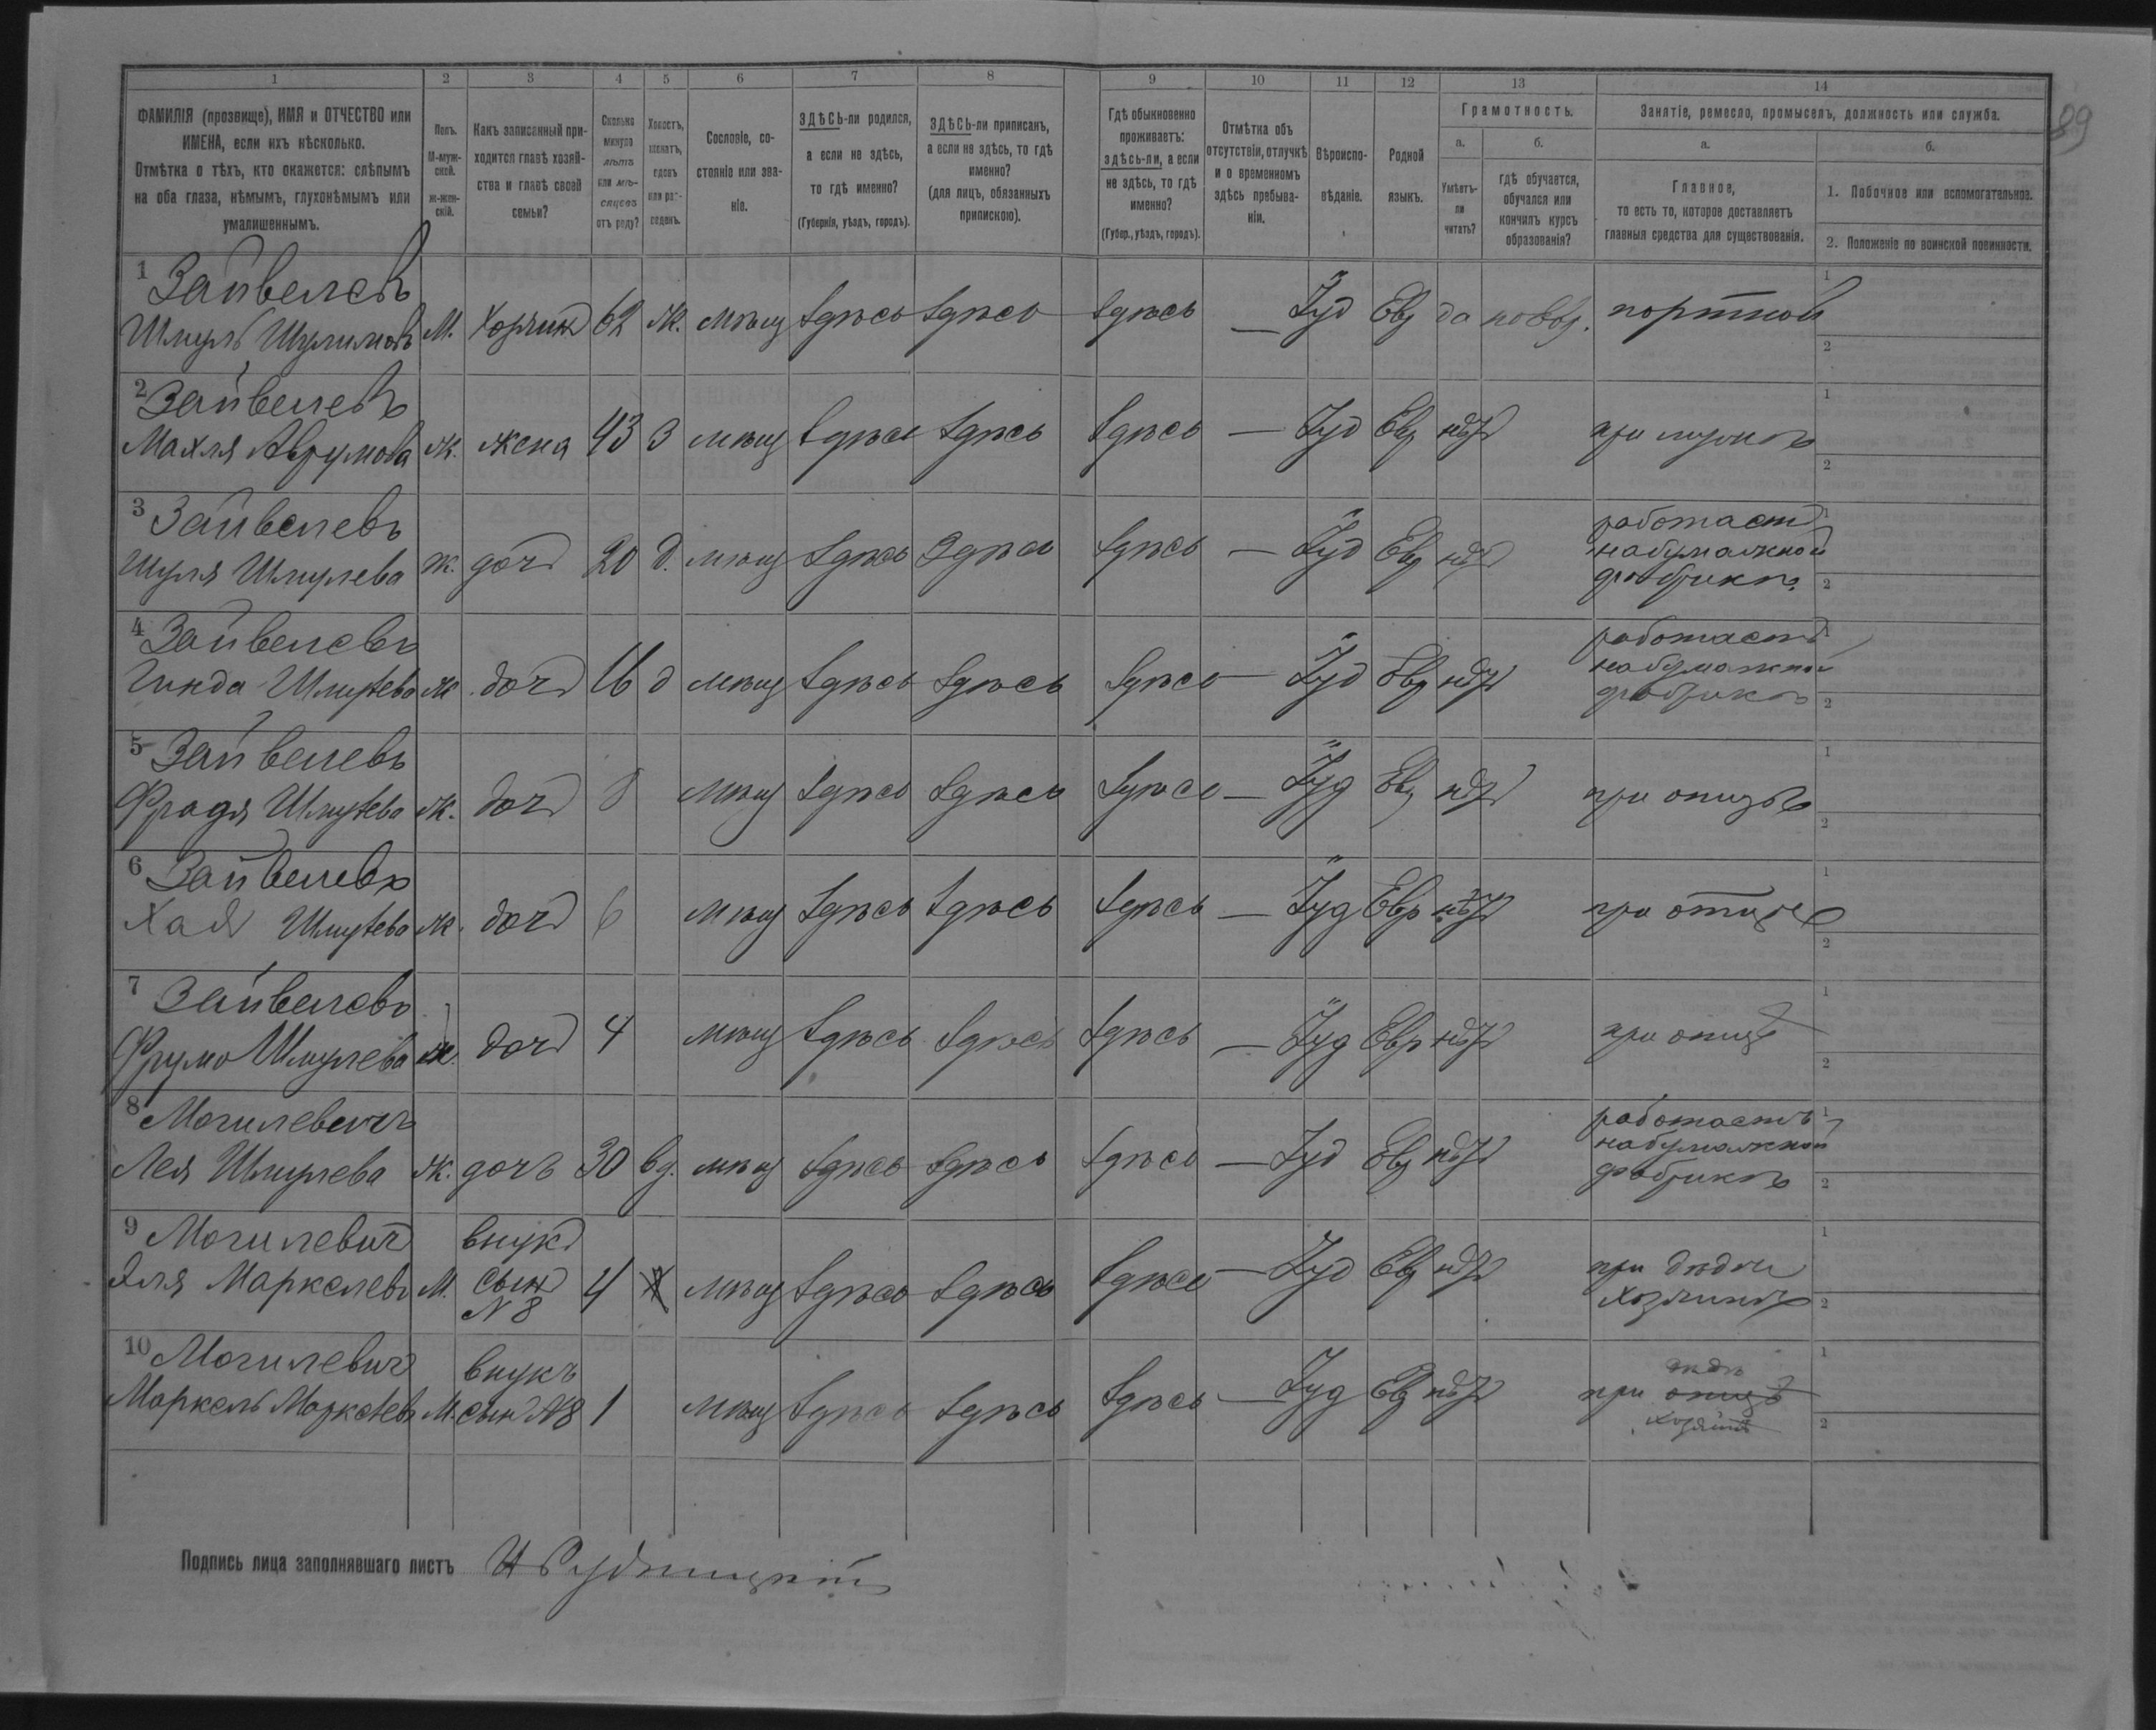 89
1 2 3 4 5 6 7 8 9 10 11 12 13 14
ФАМИЛІЯ (прозвище), ИМЯ и ОТЧЕСТВО или ИМЕНА, если ихъ нѣсколько.
Отмѣтка о тѣхъ, кто окажется: слѣпымъ на оба глаза, нѣмымъ, глухонѣмымъ или умалишеннымъ.
Полъ. М-мужской. ж-женскій.
Какъ записанный приходится главѣ хозяйства и главѣ своей семьи?
Сколько минуло лѣтъ или мѣсяцевъ отъ роду?
Холостъ, женатъ, вдовъ или разведенъ.
Сословіе, состояніе или званіе.
ЗДѢСЬ-ли родился, а если не здѣсь, то гдѣ именно?
(Губернія, уѣздъ, городъ).
ЗДѢСЬ-ли приписанъ, а если не здѣсь, то гдѣ именно?
(для лицъ, обязанныхъ припискою).
Гдѣ обыкновенно проживаетъ: здѣсь-ли, а если не здѣсь, то гдѣ именно?
(Губер., уѣздъ, городъ).
Отмѣтка объ отсутствіи, отлучкѣ и о временномъ здѣсь пребываніи.
Вѣроисповѣданіе.
Родной языкъ.
Грамотность.
а. Умѣетъ-ли читать?
б. гдѣ обучается, обучался или кончилъ курсъ образованія?
Занятіе, ремесло, промыселъ, должность или служба.
а. Главное, то есть то, которое доставляетъ главныя средства для существованія.
б.
1. Побочное или вспомогательное.
2. Положеніе по воинской повинности.
1 Зайвелевъ
Шмуль Шулимовъ М. Хозяин 62 Ж. мѣщ Здѣсь Здѣсь Здѣсь — Іуд Евр да поевр. портной
2 Зайвелевъ
Махля Аврумова Ж. жена 43 З мѣщ Здѣсь Здѣсь Здѣсь — Іуд Евр нѣт при мужѣ
3 Зайвелевъ
Шуля Шмулева Ж. доч 20 д. мѣщ Здѣсь Здѣсь Здѣсь — Іуд Евр нѣт работает на бумажной фабрикѣ
4 Зайвелевъ
Гинда Шмулева Ж доч 16 д мѣщ Здѣсь Здѣсь Здѣсь — Іуд Евр нѣт работает на бумажной фабрикѣ
5 Зайвелевъ
Фрадя Шмулева Ж. доч 8 мѣщ Здѣсь Здѣсь Здѣсь — Іуд Евр нѣт при отцѣ
6 Зайвелевъ
Хая Шмулева Ж. доч 6 мѣщ Здѣсь Здѣсь Здѣсь — Іуд Евр нѣт при отцѣ
7 Зайвелевъ
Фрума Шмулева Ж. доч 4 мѣщ Здѣсь Здѣсь Здѣсь — Іуд Евр нѣт при отцѣ
8 Могилевичъ
Лея Шмулева Ж. дочъ 30 вд. мѣщ Здѣсь Здѣсь Здѣсь — Іуд Евр нѣт работаетъ на бумажной фабрикѣ
9 Могилевич
Эля Маркелевъ М. внук сын N 8 4 мѣщ Здѣсь Здѣсь Здѣсь — Іуд Евр нѣт при дѣдѣ Хозяинѣ
10 Могилевич
Маркель Маркелевъ М. внукъ сын N8 1 мѣщ Здѣсь Здѣсь Здѣсь — Іуд Евр нѣт при отцѣ
Подпись лица заполнявшаго листъ И Рудницкій